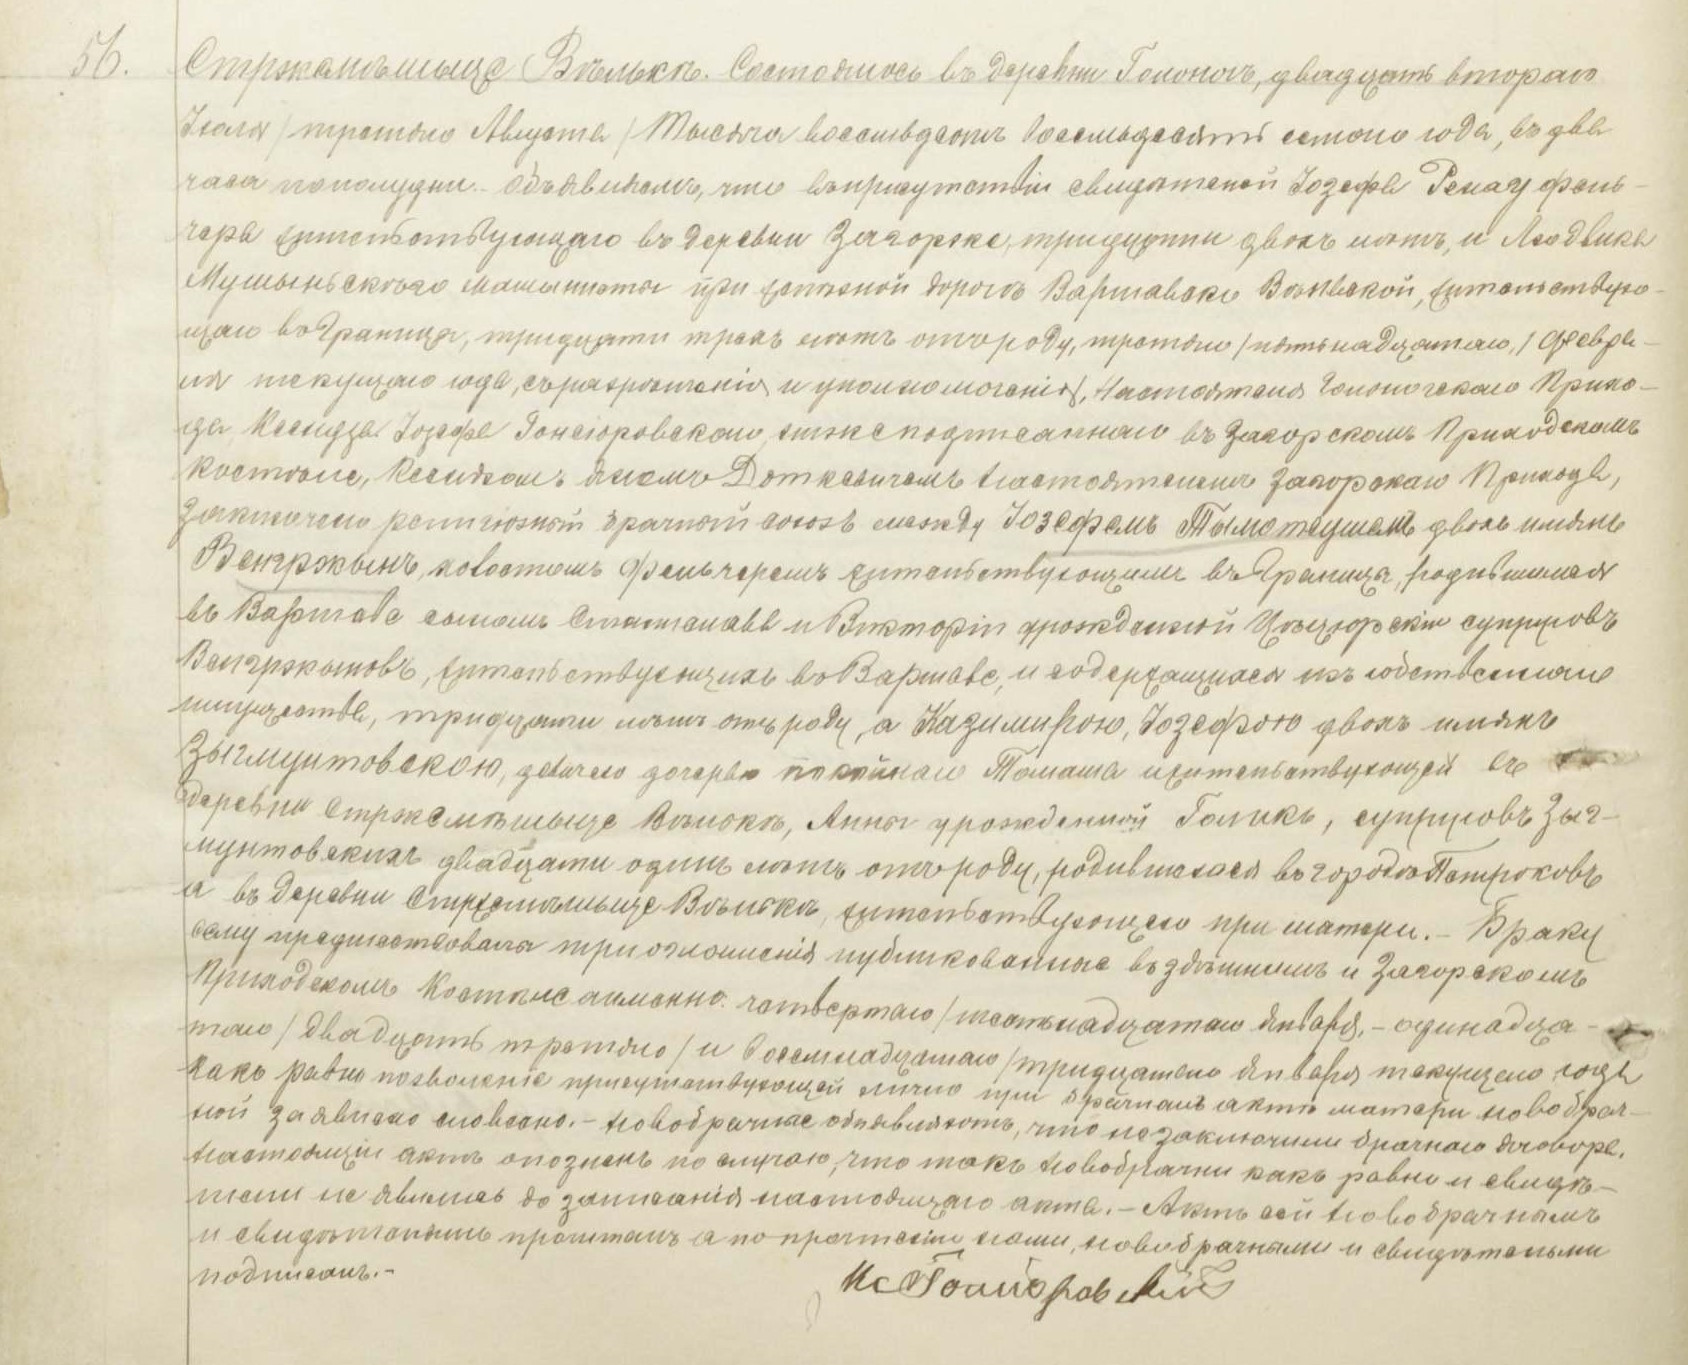 56. Стржемѣшыце Вѣльке. Состоялось въ деревни Голоногъ, двадцать втораго
Іюля / третяго Августа / Тысяча восемьдсотъ восемьдесятъ седмаго года, въ два
часа пополудни. Объявляемъ, что въ присутствіи свидѣтелей Іозефа Фель-
чера жительствующаго въ деревни Загорже, тридцати двохъ лѣтъ, и Людвика
Мушыньскѣго машыниста при желѣзной дорогѣ Варшавско Вѣнской, жительствую-
щаго въ Граница, тридцати трехъ лѣтъ отъ роду, третяго / пятьнадцатаго, / Февра-
ля текущаго года, съ разрѣшенія и уполномоченія, Настоятеля Голоногскаго Прихо-
да Ксендза Іозефа Гонсіоровскаго нижеподписаннаго въ Загорскомъ Приходскомъ
Костѣле, Ксендзомъ Яномъ Доткевичемъ Настоятелемъ Загорскаго Прихода,
Заключено религіозный брачный союзъ между Іозефомъ Тымотеушемъ двохъ имянъ
Венгржынъ, холостымъ Фельчеромъ жительствующимъ въ Граница, родившимся
въ Варшаве сыномъ Станислава и Викторіи урожденной супруговъ
Венгржыновъ, жительствующихъ въ Варшаве, и содержащихся изъ собственнаго
имущества, тридцати лѣтъ отъ роду, а Казимирою, Іозефою двохъ имянъ
Зыгмунтовскою, девицею дочерью покойнаго Томаша и жительствующей въ
деревни Стржемѣшыце Вѣльке, Анны урожденной Голикъ, супруговъ Зыг-
мунтовскихъ двадцати одинъ лѣтъ отъ роду, родившеюся въ городѣ Петроковѣ
а въ деревни Стржемѣшыце Вѣльке, жительствующею при матери. - Браку
сему предшествовали три оглашенія публикованные въ здѣшнимъ и Загорскомъ
Приходскомъ Костѣле а именно: четвертаго / шестьнадцатаго Января, - одинадца-
таго / двадцать третяго / и восемнадцатаго / тридцатаго Января текущаго года
какъ равно позволеніе присутствующей лично при брачномъ актѣ матери новобрач-
ной заявлено словесно. - Новобрачные объявляютъ, что незаключили брачнаго договора.
Настоящій актъ опозненъ по случаю, что такъ новобрачни какъ равно и свидѣ-
тели не явились до записанія настоящаго акта. - Актъ сей Новобрачнымъ
и свидѣтелямъ прочитанъ а по прочтеніи нами, новобрачными и свидѣтелями
подписанъ. -
Кс Гонсіоровскій